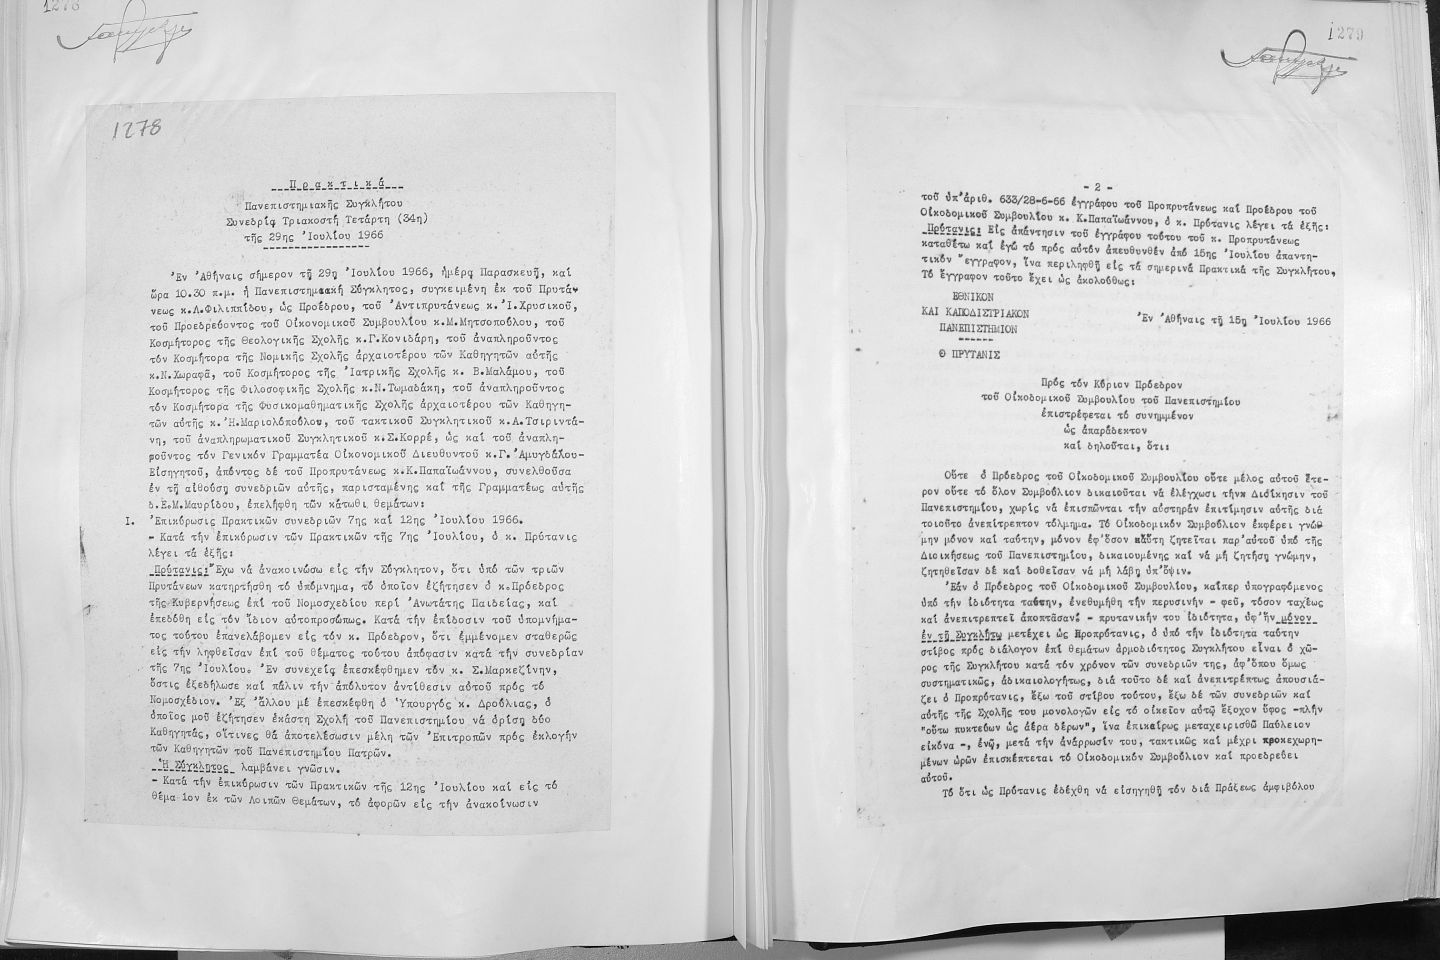 1278
1278
Πρακτικά
Πανεπιστημιακῆς Συγκλήτου
Συνεδρίᾳ Τριακοστῇ Τετάρτῃ (34η)
τῆς 29ης Ἰουλίου 1966
Ἐν Ἀθήναις σήμερον τῇ 29ῃ Ἰουλίου 1966, ἡμέρᾳ Παρασκευῇ, καί
ὥρα 10.30 π.μ. ἡ Πανεπιστημιακή Σύγκλητος, συγκειμένη ἐκ τοῦ Πρυτά-
νεως κ.Λ.Φιλιππίδου, ὡς Προέδρου, τοῦ Ἀντιπρυτάνεως κ. Ἰ.Χρυσικοῦ,
τοῦ Προεδρεύοντος τοῦ Οἰκονομικοῦ Συμβουλίου κ.Μ.Μητσοπούλου, τοῦ
Κοσμήτορος τῆς Θεολογικῆς Σχολῆς κ.Γ.Κονιδάρη, τοῦ ἀναπληροῦντος
τόν Κοσμήτορα τῆς Νομικῆς Σχολῆς ἀρχαιοτέρου τῶν Καθηγητῶν αὐτῆς
κ.Ν.Χωραφᾶ, τοῦ Κοσμήτορος τῆς Ἰατρικῆς Σχολῆς κ. Β.Μαλάμου, τοῦ
Κοσμήτορος τῆς Φιλοσοφικῆς Σχολῆς κ.Ν.Τωμαδάκη, τοῦ ἀναπληροῦντος
τόν Κοσμήτορα τῆς Φυσικομαθηματικῆς Σχολῆς ἀρχαιοτέρου τῶν Καθηγη-
τῶν αὐτῆς κ.Ἠ.Μαριολόπουλου, τοῦ τακτικοῦ Συγκλητικοῦ κ.Α.Τσιριντά-
νη, τοῦ ἀναπληρωματικοῦ Συγκλητικοῦ κ.Σ.Κορρέ, ὡς καί τοῦ ἀναπλη-
ροῦντος τόν Γενικόν Γραμματέα Οἰκονομικοῦ Διευθυντοῦ κ.Γ.Ἀμυγδάλου-
Εἰσηγητοῦ, ἀπόντος δέ τοῦ Προπρυτάνεως κ.Κ.Παπαϊωάννου, συνελθοῦσα
ἐν τῇ αἰθούσῃ συνεδριῶν αὐτῆς, παρισταμένης καί τῆς Γραμματέως αὐτῆς
δ.Ε.Μ.Μαυρίδου, ἐπελήφθη τῶν κάτωθι θεμάτων:
I. Ἐπικύρωσις Πρακτικῶν συνεδριῶν 7ης καί 12ης Ἰουλίου 1966.
- Κατά τήν ἐπικύρωσιν τῶν Πρακτικῶν τῆς 7ης Ἰουλίου, ὁ κ. Πρύτανις
λέγει τά ἑξῆς:
Πρύτανις: Ἔχω νά ἀνακοινώσω εἰς τήν Σύγκλητον, ὅτι ὑπό τῶν τριῶν
Πρυτάνεων κατηρτήσθη τό ὑπόμνημα, τό ὁποῖον ἐζήτησεν ὁ κ.Πρόεδρος
τῆς Κυβερνήσεως ἐπί τοῦ Νομοσχεδίου περί Ἀνωτάτης Παιδείας, καί
ἐπεδόθη εἰς τόν ἴδιον αὐτοπροσώπως. Κατά τήν ἐπίδοσιν τοῦ ὑπομνήμα-
τος τούτου ἐπανελάβομεν εἰς τόν κ. Πρόεδρον, ὅτι ἐμμένομεν σταθερῶς
εἰς τήν ληφθεῖσαν ἐπί τοῦ θέματος τούτου ἀπόφασιν κατά τήν συνεδρίαν
τῆς 7ης Ἰουλίου. Ἐν συνεχείᾳ ἐπεσκέφθημεν τόν κ. Σ.Μαρκεζίνην,
ὅστις ἐξεδήλωσε καί πάλιν τήν ἀπόλυτον ἀντίθεσιν αὐτοῦ πρός τό
Νομοσχέδιον. Ἐξ ἄλλου μέ ἐπεσκέφθη ὁ Ὑπουργός κ. Δρούλιας, ὁ
ὁποῖος μοῦ ἐζήτησεν ἑκάστη Σχολή τοῦ Πανεπιστημίου νά ὁρίσῃ δύο
Καθηγητάς, οἵτινες θά ἀποτελέσωσιν μέλη τῶν Ἐπιτροπῶν πρός ἐκλογήν
τῶν Καθηγητῶν τοῦ Πανεπιστημίου Πατρῶν.
Ἡ Σύγκλητος λαμβάνει γνῶσιν.
- Κατά τήν ἐπικύρωσιν τῶν Πρακτικῶν τῆς 12ης Ἰουλίου καί εἰς τό
θέμα 1ον ἐκ τῶν Λοιπῶν Θεμάτων, τό ἀφορῶν εἰς τήν ἀνακοίνωσιν
1279
- 2 -
τοῦ ὑπ' ἀριθ. 633/28-6-66 ἐγγράφου τοῦ Προπρυτάνεως καί Προέδρου τοῦ
Οἰκοδομικοῦ Συμβουλίου κ. Κ.Παπαϊωάννου, ὁ κ. Πρύτανις λέγει τά ἑξῆς:
Πρύτανις: Εἰς ἀπάντησιν τοῦ ἐγγράφου τούτου τοῦ κ. Προπρυτάνεως
καταθέτω καί ἐγώ τό πρός αὐτόν ἀπευθυνθέν ἀπό 15ης Ἰουλίου ἀπαντη-
τικόν ἔγγραφον, ἵνα περιληφθῇ εἰς τά σημερινά Πρακτικά τῆς Συγκλήτου,
Τό ἔγγραφον τοῦτο ἔχει ὡς ἀκολούθως:
ΕΘΝΙΚΟΝ
ΚΑΙ ΚΑΠΟΔΙΣΤΡΙΑΚΟΝ
ΠΑΝΕΠΙΣΤΗΜΙΟΝ
Ἐν Ἀθήναις τῇ 15ῃ Ἰουλίου 1966
Ὁ ΠΡΥΤΑΝΙΣ
Πρός τόν Κύριον Πρόεδρον
τοῦ Οἰκοδομικοῦ Συμβουλίου τοῦ Πανεπιστημίου
ἐπιστρέφεται τό συνημμένον
ὡς ἀπαράδεκτον
καί δηλοῦται, ὅτι:
Οὔτε ὁ Πρόεδρος τοῦ Οἰκοδομικοῦ Συμβουλίου οὔτε μέλος αὐτοῦ ἕτε-
ρον οὔτε τό ὅλον Συμβούλιον δικαιοῦται νά ἐλέγχωσι τήν Διοίκησιν τοῦ
Πανεπιστημίου, χωρίς νά ἐπισπῶνται τήν αὐστηράν ἐπιτίμησιν αὐτῆς διά
τοιοῦτο ἀνεπίτρεπτον τόλμημα. Τό Οἰκοδομικόν Συμβούλιον ἐκφέρει γνώ-
μην μόνον καί ταύτην, μόνον ἐφ' ὅσον αὕτη ζητεῖται παρ' αὐτοῦ ὑπό τῆς
Διοικήσεως τοῦ Πανεπιστημίου, δικαιουμένης καί νά μή ζητήσῃ γνώμην,
ζητηθεῖσαν δέ καί δοθεῖσαν νά μή λάβῃ ὑπ' ὄψιν.
Ἐάν ὁ Πρόεδρος τοῦ Οἰκοδομικοῦ Συμβουλίου, καίπερ ὑπογραφόμενος
ὑπό τήν ἰδιότητα ταύτην, ἐνεθυμήθη τήν περυσινήν - φεῦ, τόσον ταχέως
καί ἀνεπιτρεπτεί ἀποπτᾶσαν! - πρυτανικήν του ἰδιότητα, ὑφ' ἥν μόνον
ἐν τῇ Συγκλήτῳ μετέχει ὡς Προπρύτανις, ὁ ὑπό τήν ἰδιότητα ταύτην
στίβος πρός διάλογον ἐπί θεμάτων ἁρμοδιότητος Συγκλήτου εἶναι ὁ χῶ-
ρος τῆς Συγκλήτου κατά τόν χρόνον τῶν συνεδριῶν της, ἀφ' ὅπου ὅμως
συστηματικῶς, ἀδικαιολογήτως, διά τοῦτο δέ καί ἀνεπιτρέπτως ἀπουσιά-
ζει ὁ Προπρύτανις, ἔξω τοῦ στίβου τούτου, ἔξω δέ τῶν συνεδριῶν καί
αὐτῆς τῆς Σχολῆς του μονολογῶν εἰς τό οἰκεῖον αὐτῷ ἔξοχον ὕφος -πλήν
"οὕτω πυκτεύων ὡς ἀέρα δέρων", ἵνα ἐπικαίρως μεταχειρισθῶ Παύλειον
εἰκόνα -, ἐνῷ, μετά τήν ἀνάρρωσίν του, τακτικῶς καί μέχρι προκεχωρη-
μένων ὡρῶν ἐπισκέπτεται τό Οἰκοδομικόν Συμβούλιον καί προεδρεύει
αὐτοῦ.
Τό ὅτι ὡς Πρύτανις ἐδέχθη νά εἰσηγηθῇ τόν διά Πράξεως ἀμφιβόλου